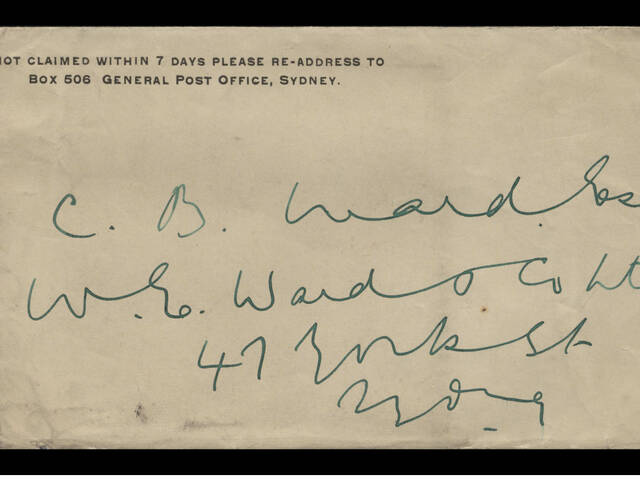 NOT CLAIMED WITHIN 7 DAYS PLEASE RE-ADDRESS TO
BOX 506 GENERAL POST OFFICE, SYDNEY.
C. B. Ward. Es
W. E. Ward & Co Lt
47 York St